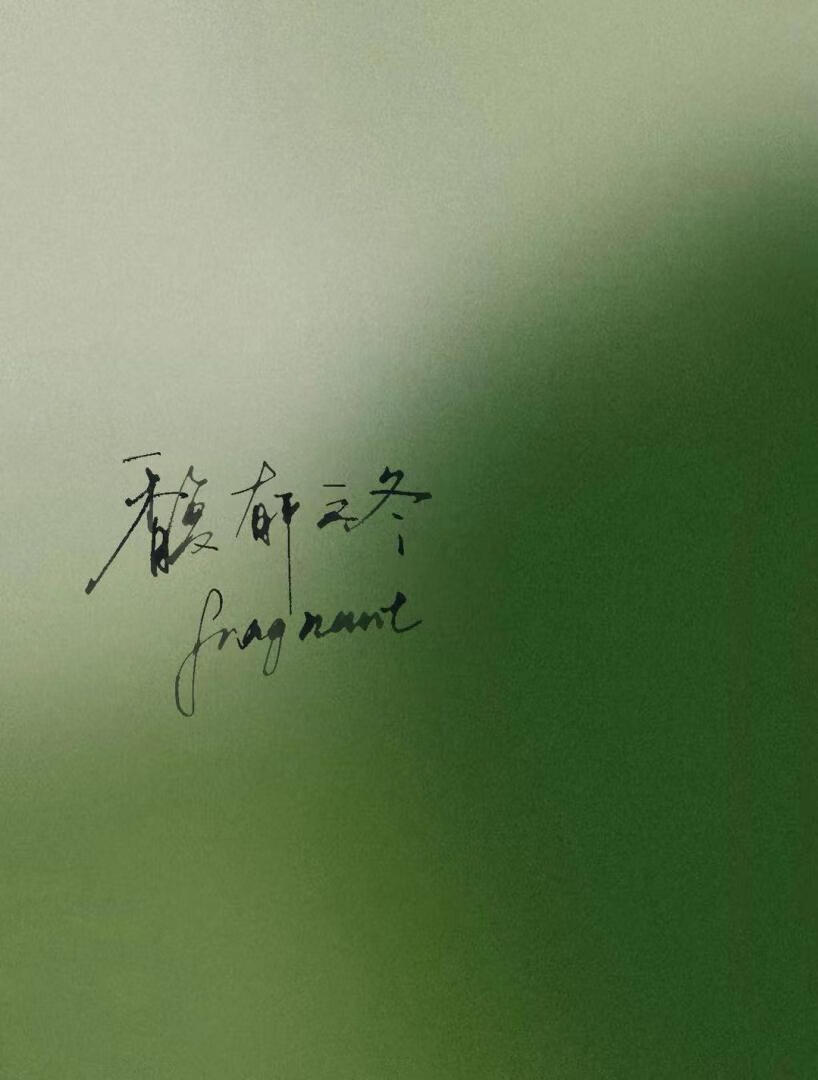 馥郁之冬
fragnant